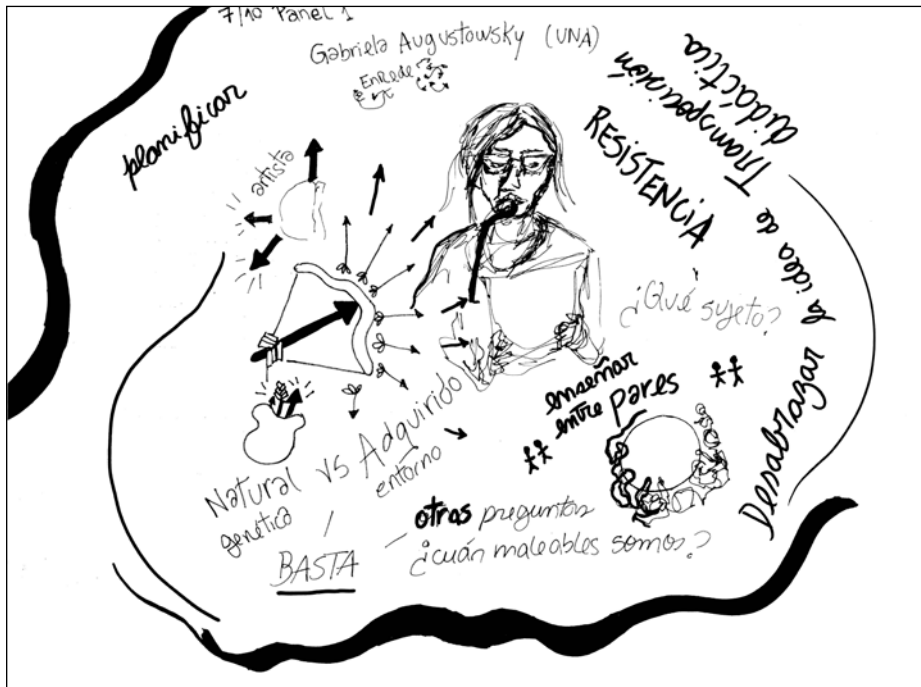 7/10 Panel 1
Gabriela Augustowsky (UNA)
EnRede
planificar
artista
RESISTENCIA
Desabrazar la idea de Transposición
didáctica
¿Qué sujeto?
enseñar
entre pares
Natural vs Adquirido
genética
entorno
BASTA
otras preguntas
¿cuán maleables somos?